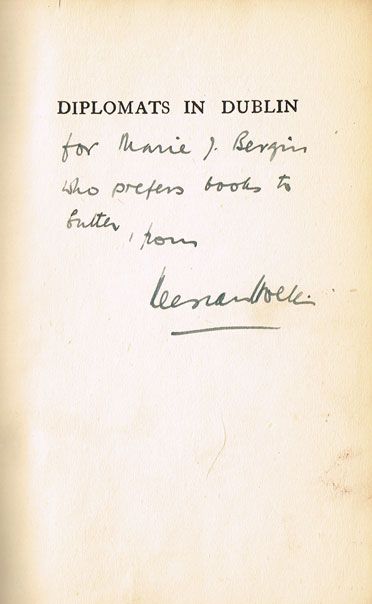 DIPLOMATS IN DUBLIN
for Marie J. Bergin
who prefers books to
butter, from
Kees van Hoek